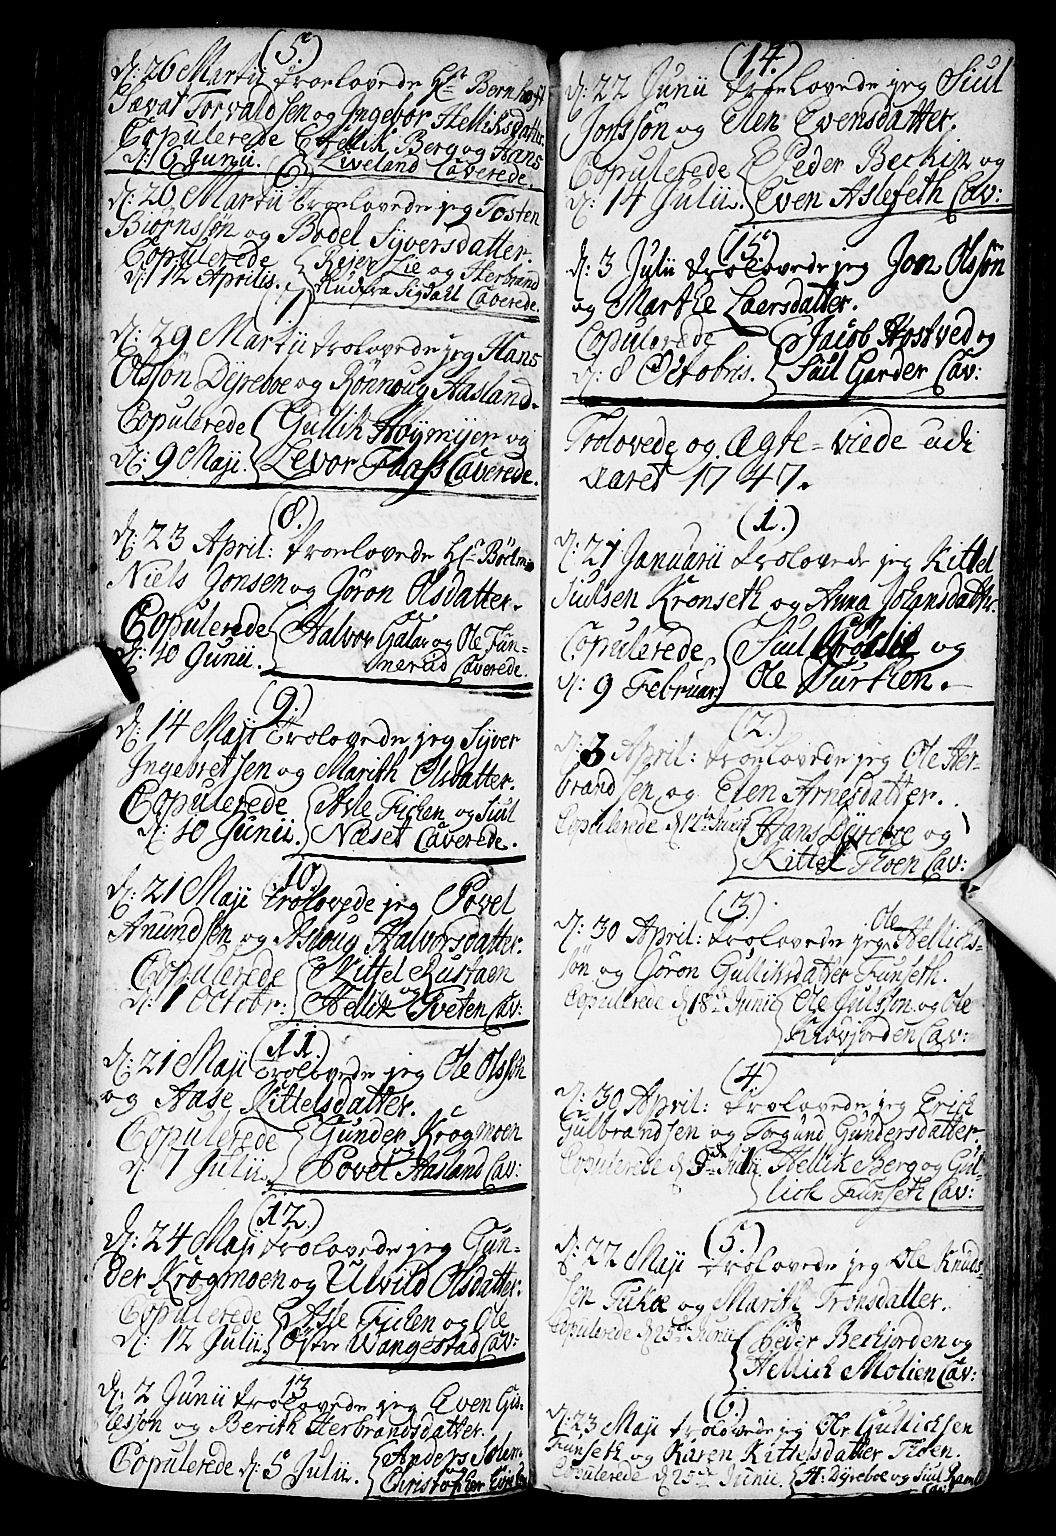 (5.)
d: 26 Martii troelovede Hr Bernhoft
Torvaldsen og Ingebor Helliksdatter.
Copulerede Hellik Berg og Hans
d: 6 Junii. Liveland Caverede.
(6.)
d: 26 Martii troelovede jeg Tosten
Biørnssøn og Bodel Syversdatter.
Copulerede Rejer Lie og Herbrand
d: 12 Aprilis. Rudfra Sigdahl Caverede.
(7.)
d: 29 Martii trolovede jeg Hans
Olssøn Dyreboe og Rønnoug Aasland.
Copulerede Gullik Høymyer og
d: 9 Maji. Levor Flaass Caverede.
(8.)
d: 23 April: troelovede Hr
Niels Jonsen og Jøron Olsdatter.
Copulerede Halvor og Ole Fun-
d: 10 Junii. merud Caverede.
(9.)
d: 14 Maji trolovede jeg Syver
Ingebretsen og Marith Olsdatter.
Copulerede Asle og Siul
d: 10 Junii. Næset Caverede.
10.
d: 21 Maji trolovede jeg Povel
Anundsen og Asloug Halvorsdatter.
Copulerede Kittel Rustaen
og
d: 1 Octobr: Hellik Tveten Cav:
(11.)
d: 21 Maji trolovede jeg Ole Olssøn
og Aase Kittelsdatter.
Copulerede Gunder Krogmoen
d: 7 Julii. Povel Aasland Cav:
(12.)
d: 24 Maji trolovede jeg Gun-
der Krogmoen og Ulvild Olsdatter.
Copulerede Asle og Ole
d: 12 Julii. Øfter Wangestad Cav:
13
d: 2 Junii trolovede jeg Even Gis-
lesøn og Berith Herbrandsdatter.
Copulerede d: 5 Julii. Anders
Christopher
(14.)
d: 22 Junii troelovede jeg Siul
Jonssøn og Elen Evensdatter.
Copulerede Peder Beckin og
d: 14 Julii. Even Aslefeth Cav:
(15.)
d: 3 Julii trolovede jeg Jon Olssøn
og Marthe Laersdatter.
Copulerede Jacob Hostved og
d: 8 Octobris. Siul Garder Cav:
Trolovede og Ægte-viede udi
Aaret 1747.
(1.)
d: 21 Januarii trolovede jeg Kittel
Siulsen Kronseth og Anna Johansdatter.
Copulerede Siul og
d: 9 Februar: Ole Turthen.
(2.)
d: 3 April: troelovede jeg Ole Her-
brandsen og Elen Arnesdatter.
Copulerede d 12te Junii Hans Dyreboe og
Kittel Floen Cav:
(3.)
Ole
d: 30 April: trolovede jeg Hellichs-
søn og Jøron Gulliksdatter Funseth.
Copulerede d 18de Junii Ole Juulssøn og Ole
Kravfjorden Cav:
(4.)
d: 30 April: trolovede jeg Erick
Gulbrandsen og Torgund Gundersdatter.
Copulerede d 9de Julii Hellik Berg og Gul-
lick Funseth Cav:
(5.)
d: 22 Maji trolovede jeg Ole Knuds-
sen og Marith Tronsdatter.
Copulerede d 25de Junii Peder Beckjorden og
Hellich Molien Cav:
(6.)
d: 23 Maji trolovede jeg Ole Gullichsen
Funseth og Karen Kittelsdatter Floen.
Copulerede d 25de Junii. H: Dyreboe og Siul
Cav: